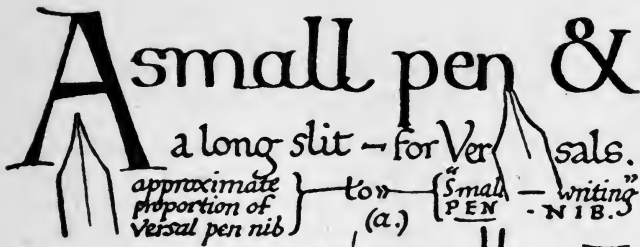 A small pen &
a long slit – for Versals.
approximate
proportion of
versal pen nib } — to» — { "Small — writing"
PEN - NIB.
(a.)